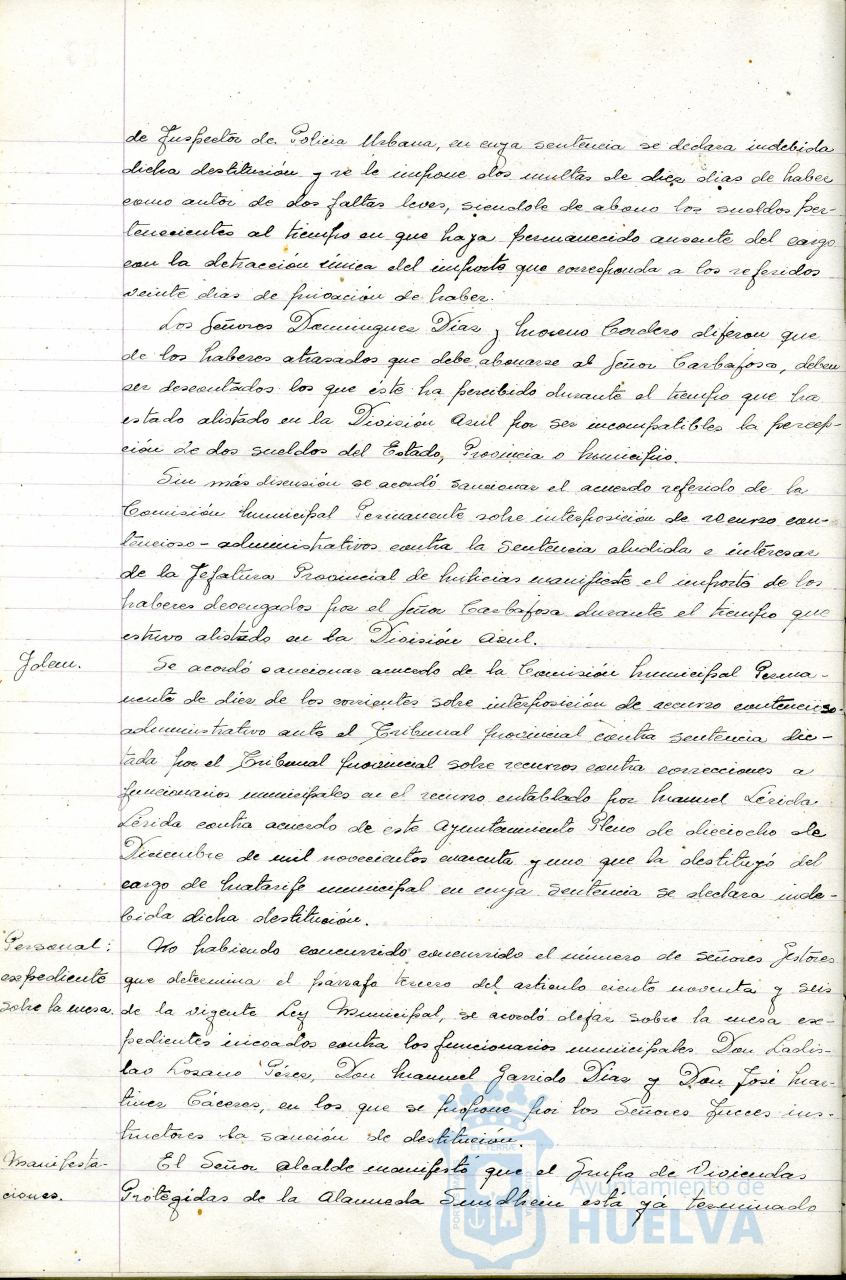 de Inspector de Policia Urbana, en cuya sentencia se declara indebida
dicha destitución y se le impone dos multas de diez dias de haber
como autor de dos faltas leves, siendole de abono los sueldos per-
tenecientes al tiempo en que haya permanecido ausente del cargo
con la detracción única del importe que corresponda a los referidos
veinte dias de privación de haber.
Los Señores Dominguez Diaz y Moreno Cordero dijeron que
de los haberes atrasados que debe abonarse al Señor Carbajosa, deben
ser descontados los que éste ha percibido durante el tiempo que ha
estado alistado en la División Azul por ser incompatibles la percep-
ción de dos sueldos del Estado, Provincia o Municipio.
Sin más discusión se acordó sancionar el acuerdo referido de la
Comisión Municipal Permanente sobre interposición de recurso con-
tencioso-administrativos contra la sentencia aludida e interesar
de la Jefatura Provincial de Milicias manifieste el importe de los
haberes devengados por el Señor Carbajosa durante el tiempo que
estuvo alistado en la División Azul.
Idem.
Se acordó sancionar acuerdo de la Comisión Municipal Perma-
nente de diez de los corrientes sobre interposición de recurso contencioso-
administrativo ante el Tribunal provincial contra sentencia dic-
tada por el Tribunal provincial sobre recursos contra correcciones a
funcionarios municipales en el recurso entablado por Manuel Lérida
Lérida contra acuerdo de este Ayuntamiento Pleno de dieciocho de
Diciembre de mil novecientos cuarenta y uno que la destituyó del
cargo de Matarife municipal en cuya sentencia se declara inde-
bida dicha destitución.
Personal:
expediente
sobre la mesa.
No habiendo concurrido concurrido el número de señores Gestores
que determina el párrafo tercero del articulo ciento noventa y seis
de la vigente Ley Municipal, se acordó dejar sobre la mesa ex-
pedientes incoados contra los funcionarios municipales Don Ladis-
lao Lozano Pérez, Don Manuel Garrido Diaz y Don José Mar-
tinez Cáceres, en los que se propone por los Señores Jueces ins-
tructores la sanción de destitución.
Manifesta-
ciones.
El Señor Alcalde manifestó que el Grupo de Viviendas
Protegidas de la Alameda Sundhein esta ya terminado
Ayuntamiento de
HUELVA